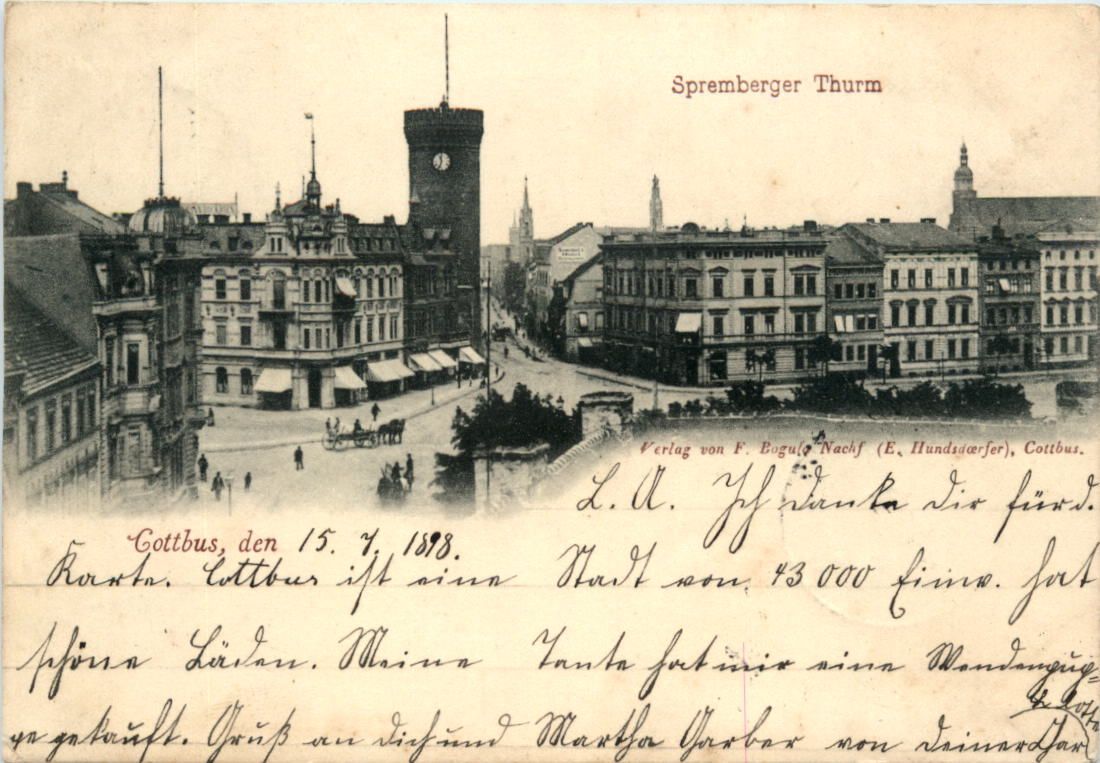 Spremberger Thurm
Verlag von F. Bogula Nachf (E. Hundsdœrfer), Cottbus.
L. A. Ich danke dir für d.
Cottbus, den 15. 7. 1898.
Karte. Cottbus ist eine Stadt von 43 000 Einw. hat
schöne Läden. Meine Tante hat mir eine Wendenpup-
pe gekauft. Gruß an dich und Martha Garber von deiner